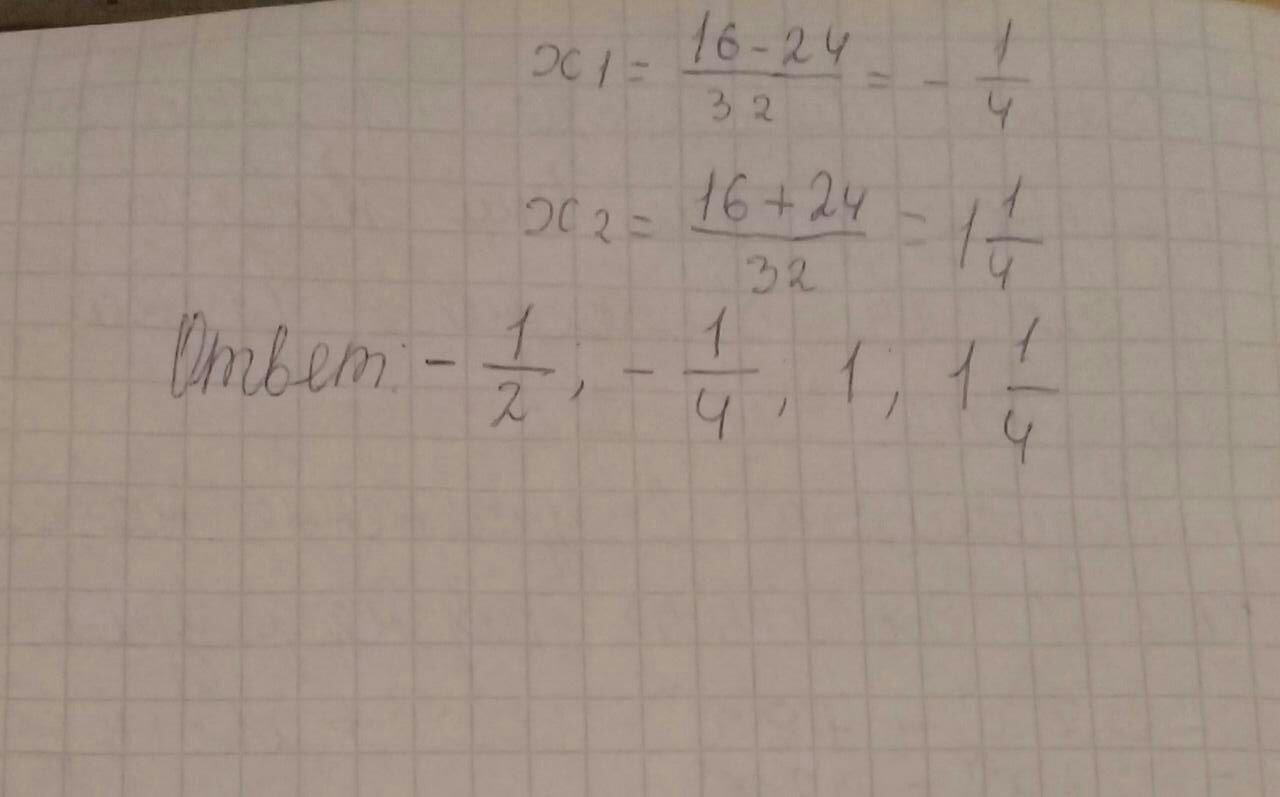 x1 = (16 - 24)/32 = - 1/4
x2 = (16 + 24)/32 = 1 1/4
Ответ: - 1/2; - 1/4; 1; 1 1/4